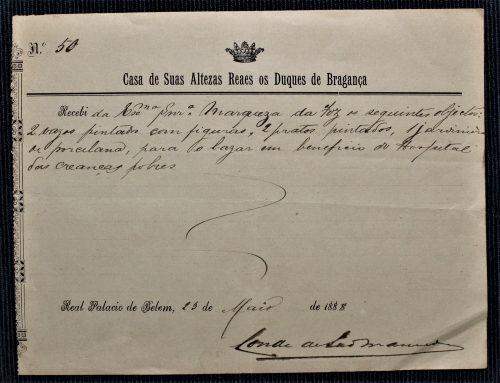 N.º 50
Casa de Suas Altezas Reaes os Duques de Bragança
Recebi da Exma Snr.a Marqueza da Foz os seguintes objectos:
2 vazos pintado com figuras, 2 pratos pintados, 1 jardineira
de porcelana, para o bazar em beneficio do Hospital
das creanças pobres
Real Palacio de Belem, 23 de Maio de 1888
Conde de São Mamede